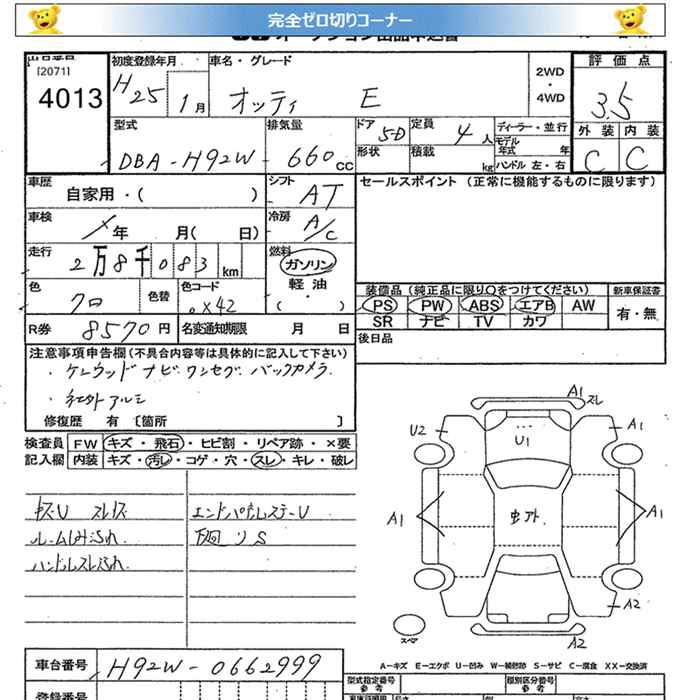 完全ゼロ切りコーナー
[2071]
4013
初度登録年月
H25 1月
車名・グレード
オッティ E
2WD
・
4WD
評価点
3.5
外装 内装
C C
型式
DBA-H92W
排気量
660cc
ドア
5D
定員
4人
ディーラー・並行
形状
積載
kg
モデル年式 年
ハンドル 左・右
車歴
自家用・( )
シフト
AT
セールスポイント (正常に機能するものに限ります)
車検
年 月( 日)
冷房
A/C
走行
2万8千083km
燃料
ガソリン
軽油
( )
色
クロ
色替
色コード
X42
装備品(純正品に限り○をつけてください)
PS PW ABS エアB AW
SR ナビ TV カワ
新車保証書
有・無
R券
8570円
名変通知期限 月 日
後日品
注意事項申告欄(不具合内容等は具体的に記入して下さい)
・ケンウッドナビワンセグバックカメラ
・社外アルミ
修復歴 有 〔箇所 〕
検査員 FW キズ・飛石・ヒビ割・リペア跡・×要
記入欄 内装 キズ・汚レ・コゲ・穴・スレ・キレ・破レ
ルームしみ汚れ
ハンドルスレ汚れ
下回りS
A1
スレ
U2
A1
U1
A1
A1
A2
A2
スペア
A-キズ E-エクボ U-凹み W-補修跡 S-サビ C-腐食 XX-交換済
車台番号
H92W-0662999
型式指定番号
参考
種別区分番号
参考
登録番号
長さ